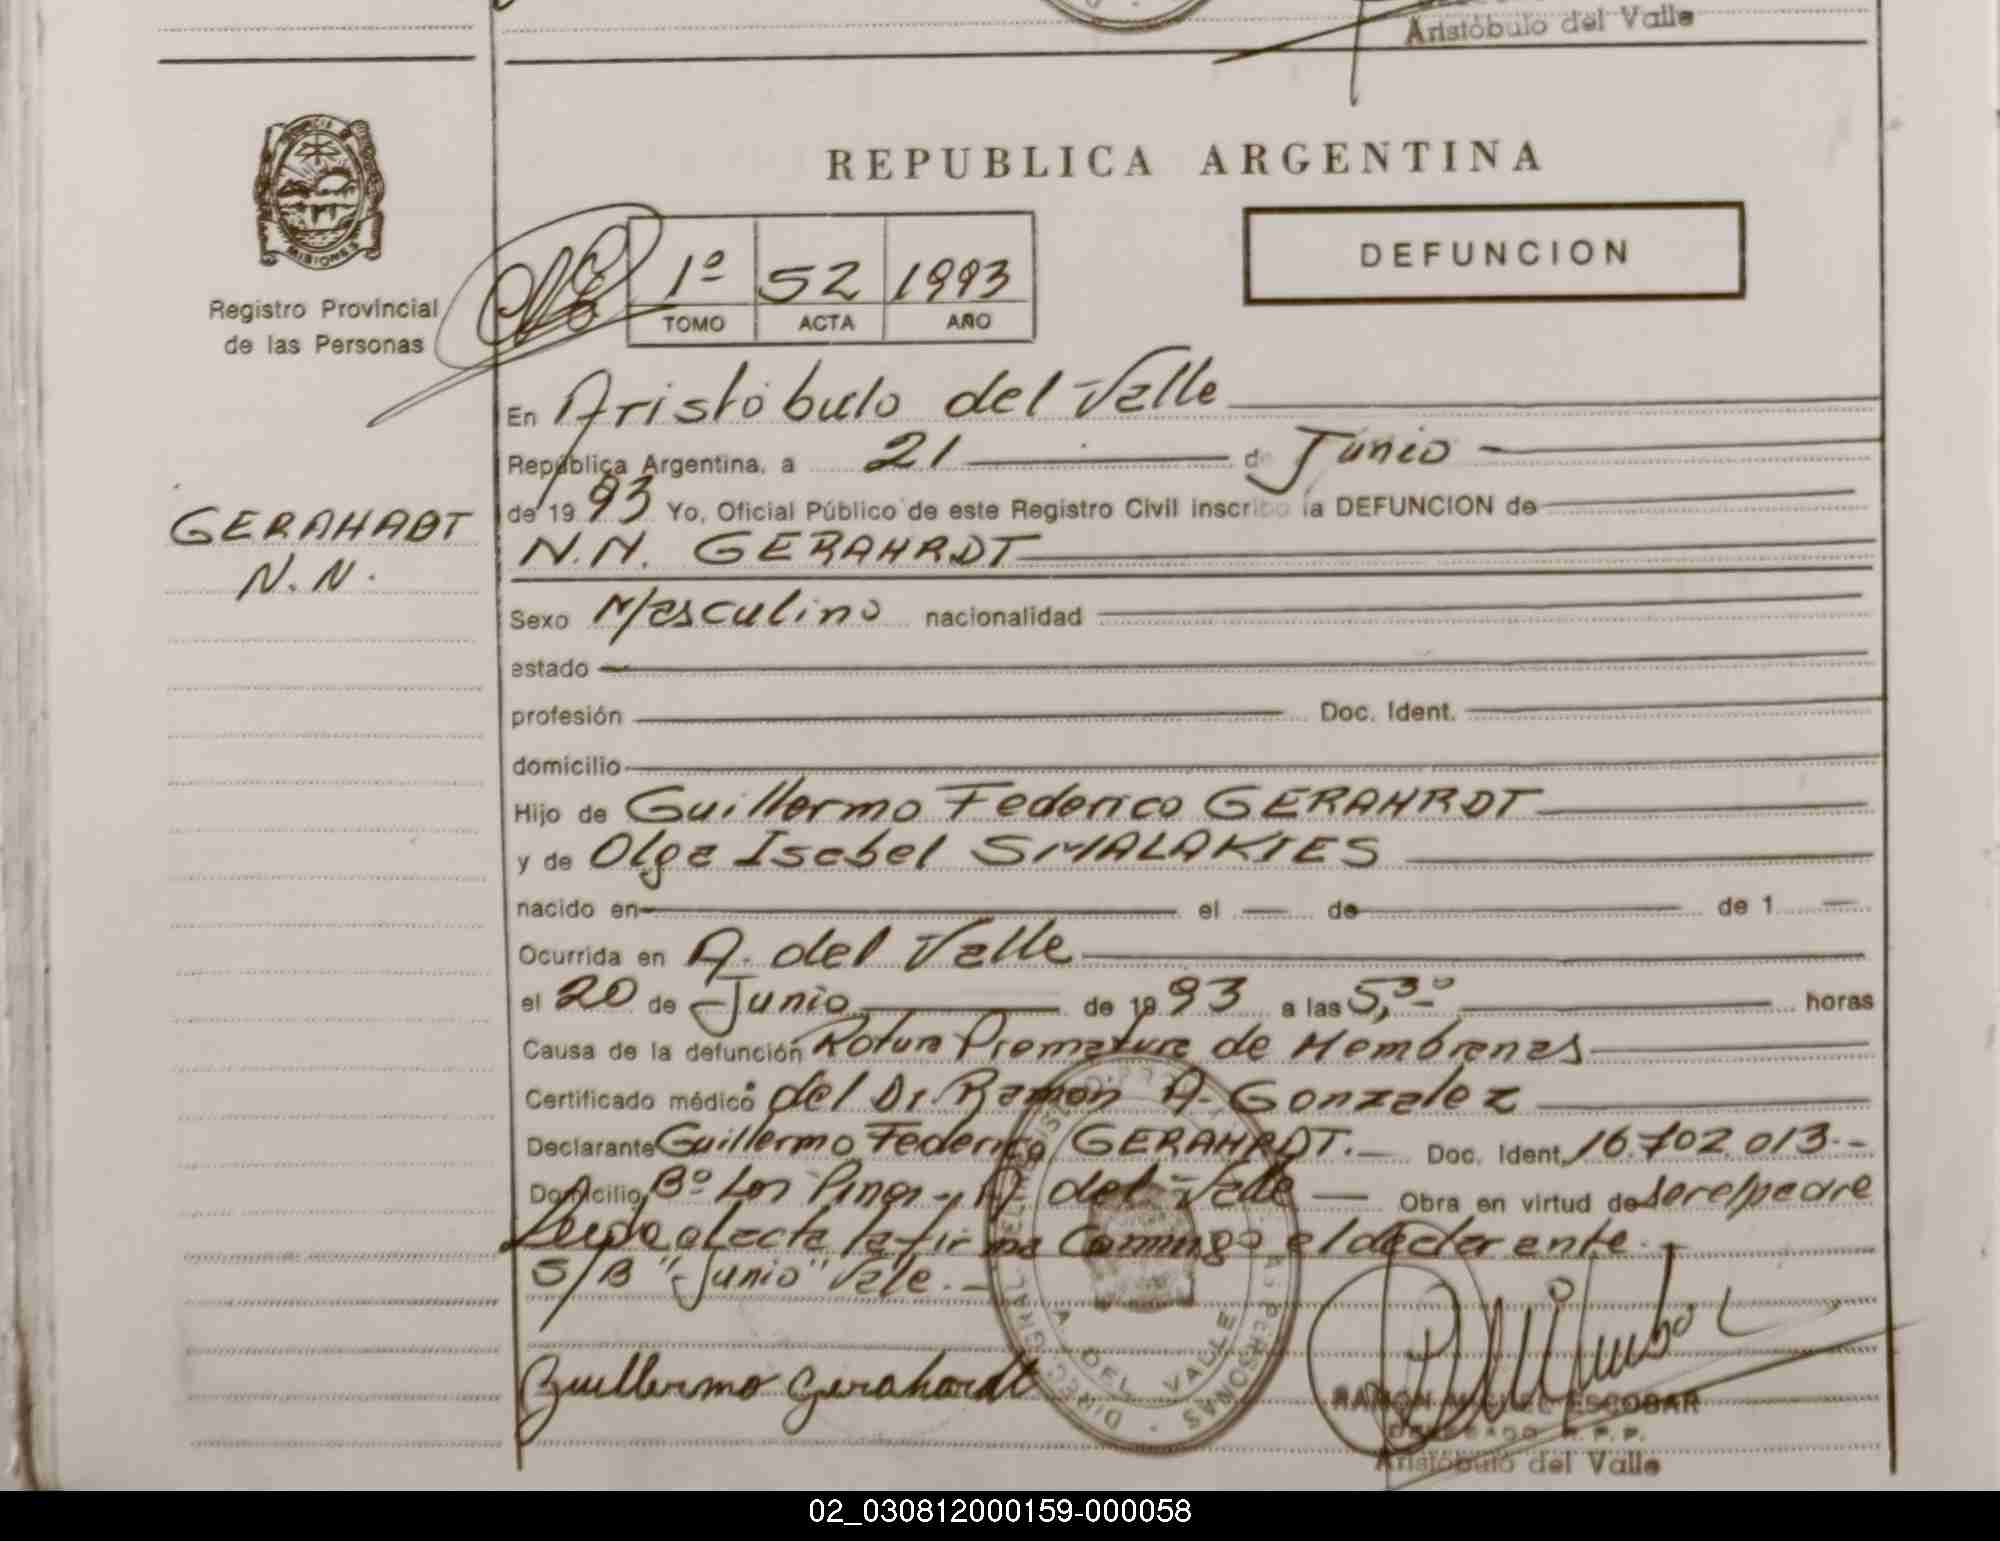 Aristóbulo del Valle
REPUBLICA ARGENTINA
PROVINCIA
MISIONES
Registro Provincial
de las Personas
DEFUNCION
1º 52 1993
TOMO ACTA AÑO
En Aristóbulo del Valle
República Argentina, a 21 de Junio
de 1993 Yo, Oficial Público de este Registro Civil inscribo la DEFUNCION de
GERAHADT
N.N.
N.N. GERAHRDT
Sexo Masculino nacionalidad
estado
profesión Doc. Ident.
domicilio
Hijo de Guillermo Federico GERAHRDT
y de Olga Isabel SMALAKIES
nacido en el de de 1
Ocurrida en A. del Valle
el 20 de Junio de 1993 a las 5,30 horas
Causa de la defunción Rotura Prematura de Membranas
Certificado médico del Dr. Ramon A. Gonzalez
Declarante Guillermo Federico GERAHRDT.- Doc. Ident. 16.702.013.-
Domicilio Bº Los Pinos - A. del Valle Obra en virtud de ser el padre
Leida el acta la firma Conmigo el declarente.-
S/B "Junio" Vale.-
Guillermo Gerahardt
A. DEL VALLE
RAMON MIGUEL ESCOBAR
DELEGADO R.P.P.
Aristóbulo del Valle
02_030812000159-000058